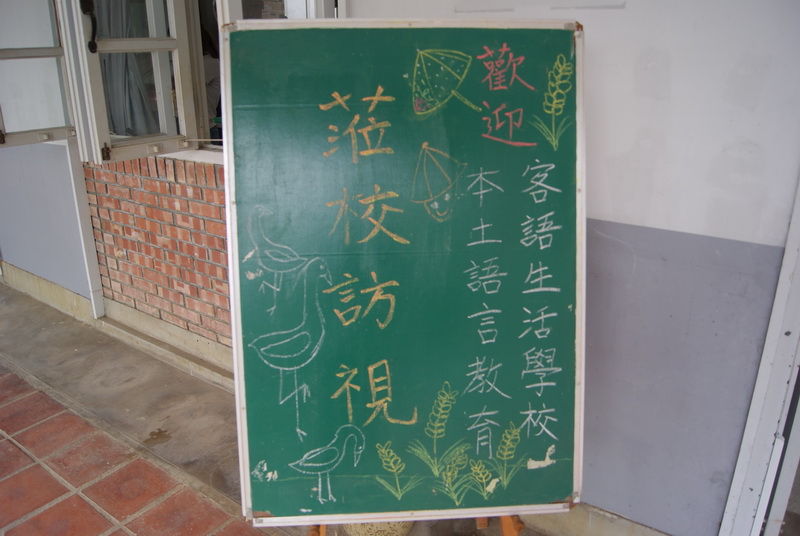 歡迎
客語生活學校
本土語言教育
蒞校訪視